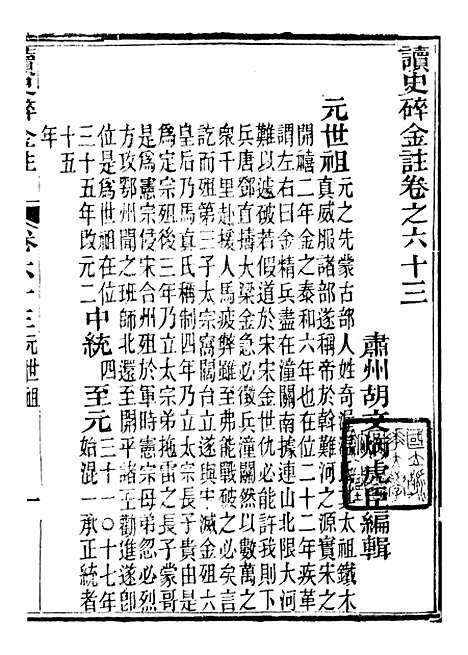 讀史碎金註卷之六十三
肅州胡文炳虎臣編輯
元世祖元之先蒙古部人姓奇渥溫氏其太祖鐵木
真威服諸部遂稱帝於斡難河之源實宋之
開禧二年金之泰和六年也在位二十二年疾革
謂左右曰金精兵盡在潼關南據連山北限大河
難以遽破若假道於宋宋金世仇必能許我則下
兵唐鄧直擣大梁金急必徵兵潼關然以數萬之
衆千里赴援人馬疲弊雖至弗能戰破之必矣言
訖而殂第三子太宗窩闊台立遂與宋滅金殂六
皇后乃馬真氏稱制四年乃立太宗之長子貴由
為定宗殂後三年乃立太宗弟拖雷之長子蒙哥
是為憲宗侵宋合州殂於軍時憲宗母弟忽必烈
方攻鄂州聞之班師北還至開平諸王勸進遂即
位是為世祖在位
三十五年改元二中統四至元三十一〇十七年
始混一承正統者
十五
年
讀史碎金註
卷六十三元世祖
一